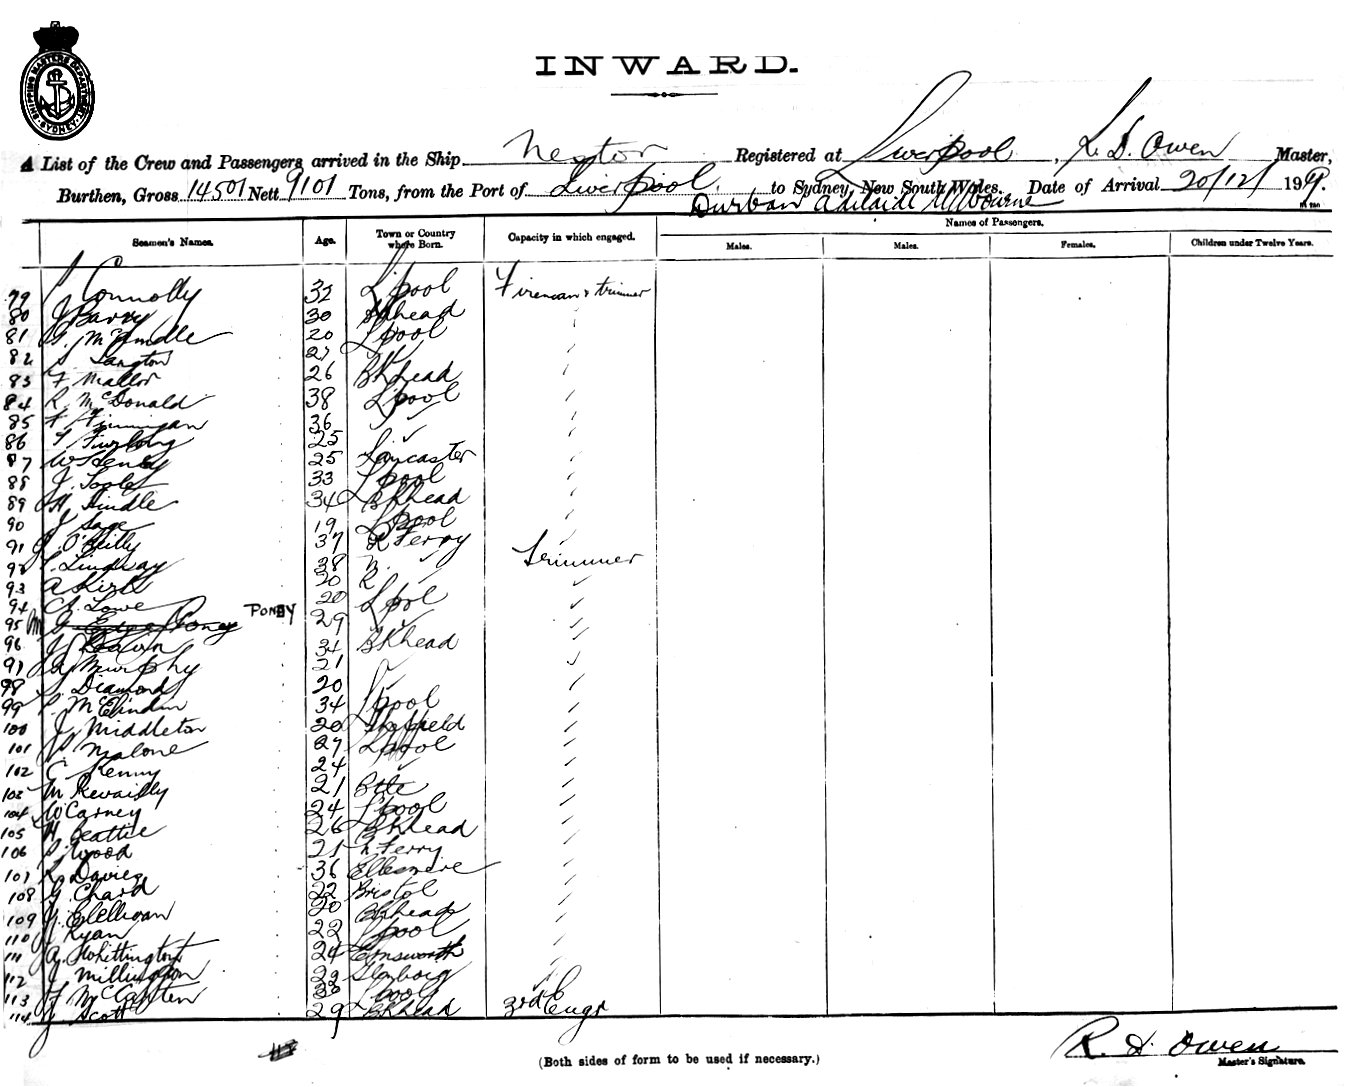 SHIPPING MASTERS DEPARTMENT SYDNEY
INWARD.
A List of the Crew and Passengers arrived in the Ship Nestor Registered at Liverpool, R. D. Owen Master,
Burthen, Gross 14501 Nett 9101 Tons, from the Port of Liverpool to Sydney, New South Wales. Date of Arrival 20/12/19
Durban Adelaide Melbourne
Names of Passengers.
Seamen's Names. Age. Town or Country where Born. Capacity in which engaged. Males. Males. Females. Children under Twelve Years.
79 Connolly 32 L'pool Fireman & trimmer
80 J Barry 30 Bkhead
81 McArdle 20 L'pool
82 Langton 27
83 F Mallor 26 Bkhead
84 R. McDonald 38 L'pool
85 F Finnigan 36
86 T Furlong 25
87 W Henly 25 Lancaster
88 J. Toole 33 L'pool
89 H Hindle 34 Bkhead
90 J Sage 19 L'pool
91 O'Reilly 37 R Ferry
92 Lindsay 38 Trimmer
93 A Kirk 20 R
94 Ch. Lowe 20 L'pool
95 PONEY 29
96 J Brown 34 Bkhead
97 Murphy 21
98 Diamond 20
99 34 L'pool
100 J Middleton 20 Sheffield
101 Malone 27 L'pool
102 C Kenny 24
103 M 21
104 W Carney 24 L'pool
105 H Beattie 26 Bkhead
106 Wood 21 Ferry
107 R Davies 36 Ellesmere
108 G. Chard 22 Bristol
109 20 Bkhead
110 J Ryan 22 L'pool
111 A. Whittington 24 Emsworth
112 J Millington
113 F L'pool
114 J Scott 29 Bkhead 3rd Engr
(Both sides of form to be used if necessary.)
R. D. Owen
Master's Signature.